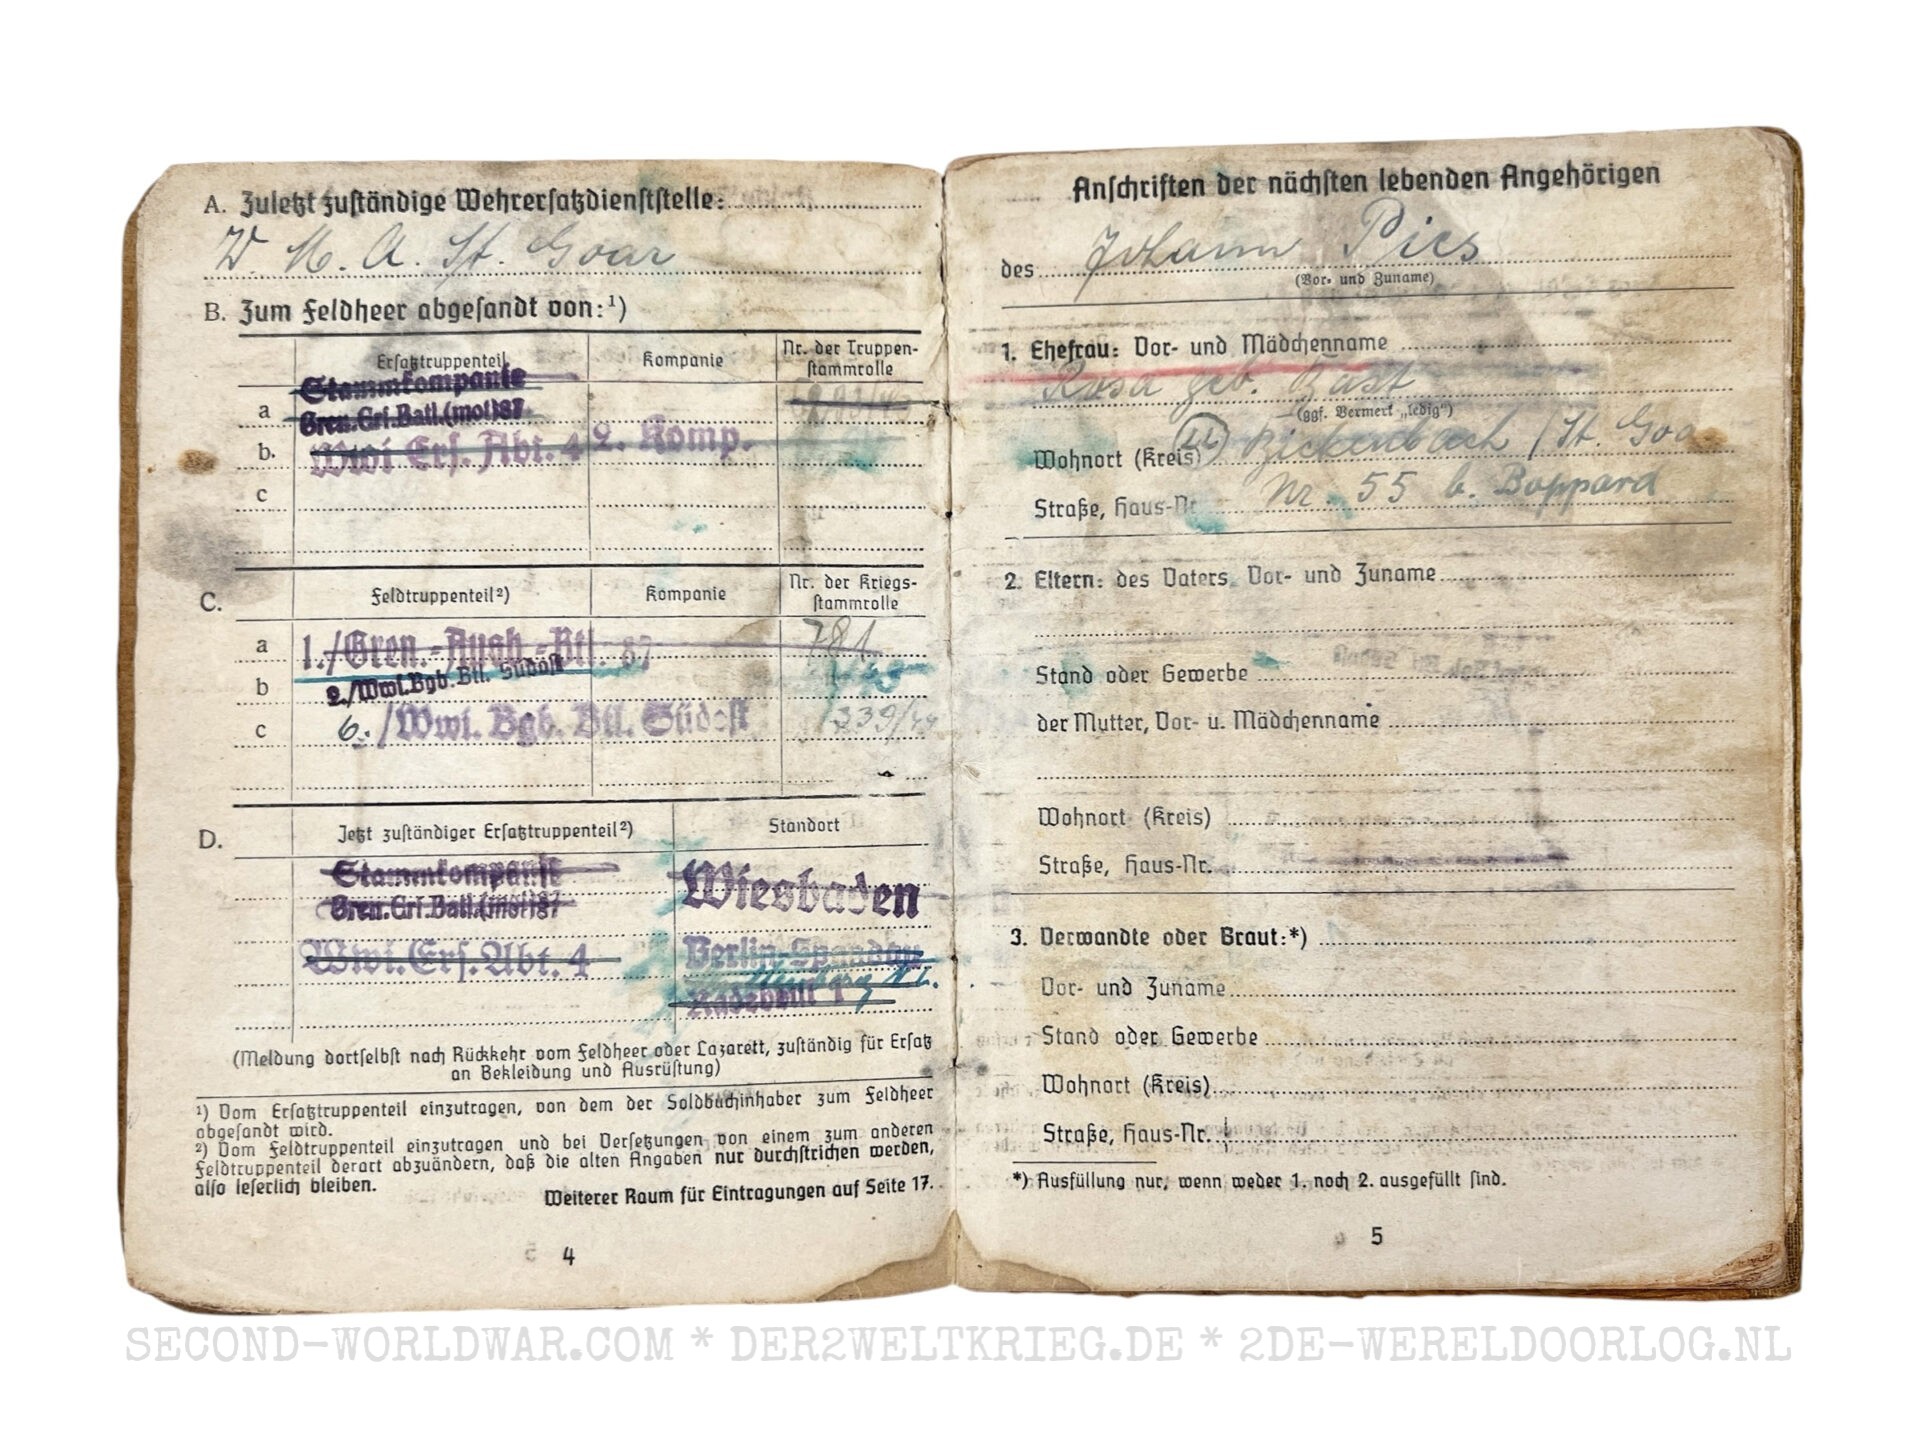 A. Zuletzt zuständige Wehrersatzdienststelle:
W. M. A. St. Goar
B. Zum Feldheer abgesandt von:¹)
Ersatztruppenteil Kompanie Nr. der Truppen-
stammrolle
Stammkompanie
a Gren.Ers.Batl.(mot)87
b. Wwi Ers. Abt. 4 2. Komp.
c
C. Feldtruppenteil²) Kompanie Nr. der Kriegs-
stammrolle
a 1./Gren.-Ausb.-Btl. 87 781
b 2./Wwi.Bgb.Btl. Südost
c 6./Wwi. Bgb. Btl. Südost 339/44
D. Jetzt zuständiger Ersatztruppenteil²) Standort
Stammkompanie Wiesbaden
Gren.Ers.Batl.(mot)87
Wwi.Ers.Abt. 4 Berlin-Spandau
(Meldung dortselbst nach Rückkehr vom Feldheer oder Lazarett, zuständig für Ersatz
an Bekleidung und Ausrüstung)
¹) Vom Ersatztruppenteil einzutragen, von dem der Soldbuchinhaber zum Feldheer
abgesandt wird.
²) Vom Feldtruppenteil einzutragen und bei Versetzungen von einem zum anderen
Feldtruppenteil derart abzuändern, daß die alten Angaben nur durchstrichen werden,
also leserlich bleiben.
Weiterer Raum für Eintragungen auf Seite 17.
4
Anschriften der nächsten lebenden Angehörigen
des Johann Pies
(Vor- und Zuname)
1. Ehefrau: Vor- und Mädchenname
Rosa geb. Bast
(ggf. Vermerk „ledig")
Wohnort (Kreis) Bickenbach / St. Goa
Straße, Haus-Nr. Nr. 55 b. Boppard
2. Eltern: des Vaters, Vor- und Zuname
Stand oder Gewerbe
der Mutter, Vor- u. Mädchenname
Wohnort (Kreis)
Straße, Haus-Nr.
3. Verwandte oder Braut:*)
Vor- und Zuname
Stand oder Gewerbe
Wohnort (Kreis)
Straße, Haus-Nr.
*) Ausfüllung nur, wenn weder 1. noch 2. ausgefüllt sind.
5
SECOND-WORLDWAR.COM * DER2WELTKRIEG.DE * 2DE-WERELDOORLOG.NL